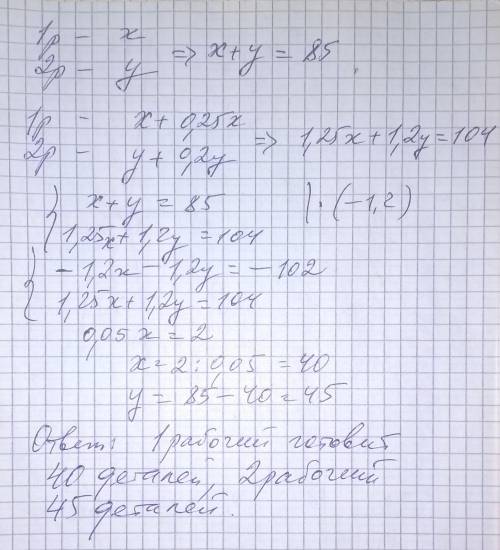 1р – x
2р – y ⇒ x+y = 85
1р – x + 0,25x
2р – y + 0,2y ⇒ 1,25x + 1,2y = 104
{ x+y = 85 |·(−1,2)
1,25x + 1,2y = 104
{ −1,2x − 1,2y = −102
1,25x + 1,2y = 104
0,05x = 2
x = 2 : 0,05 = 40
y = 85 − 40 = 45
Ответ: 1 рабочий готовит
40 деталей, 2 рабочий
45 деталей.